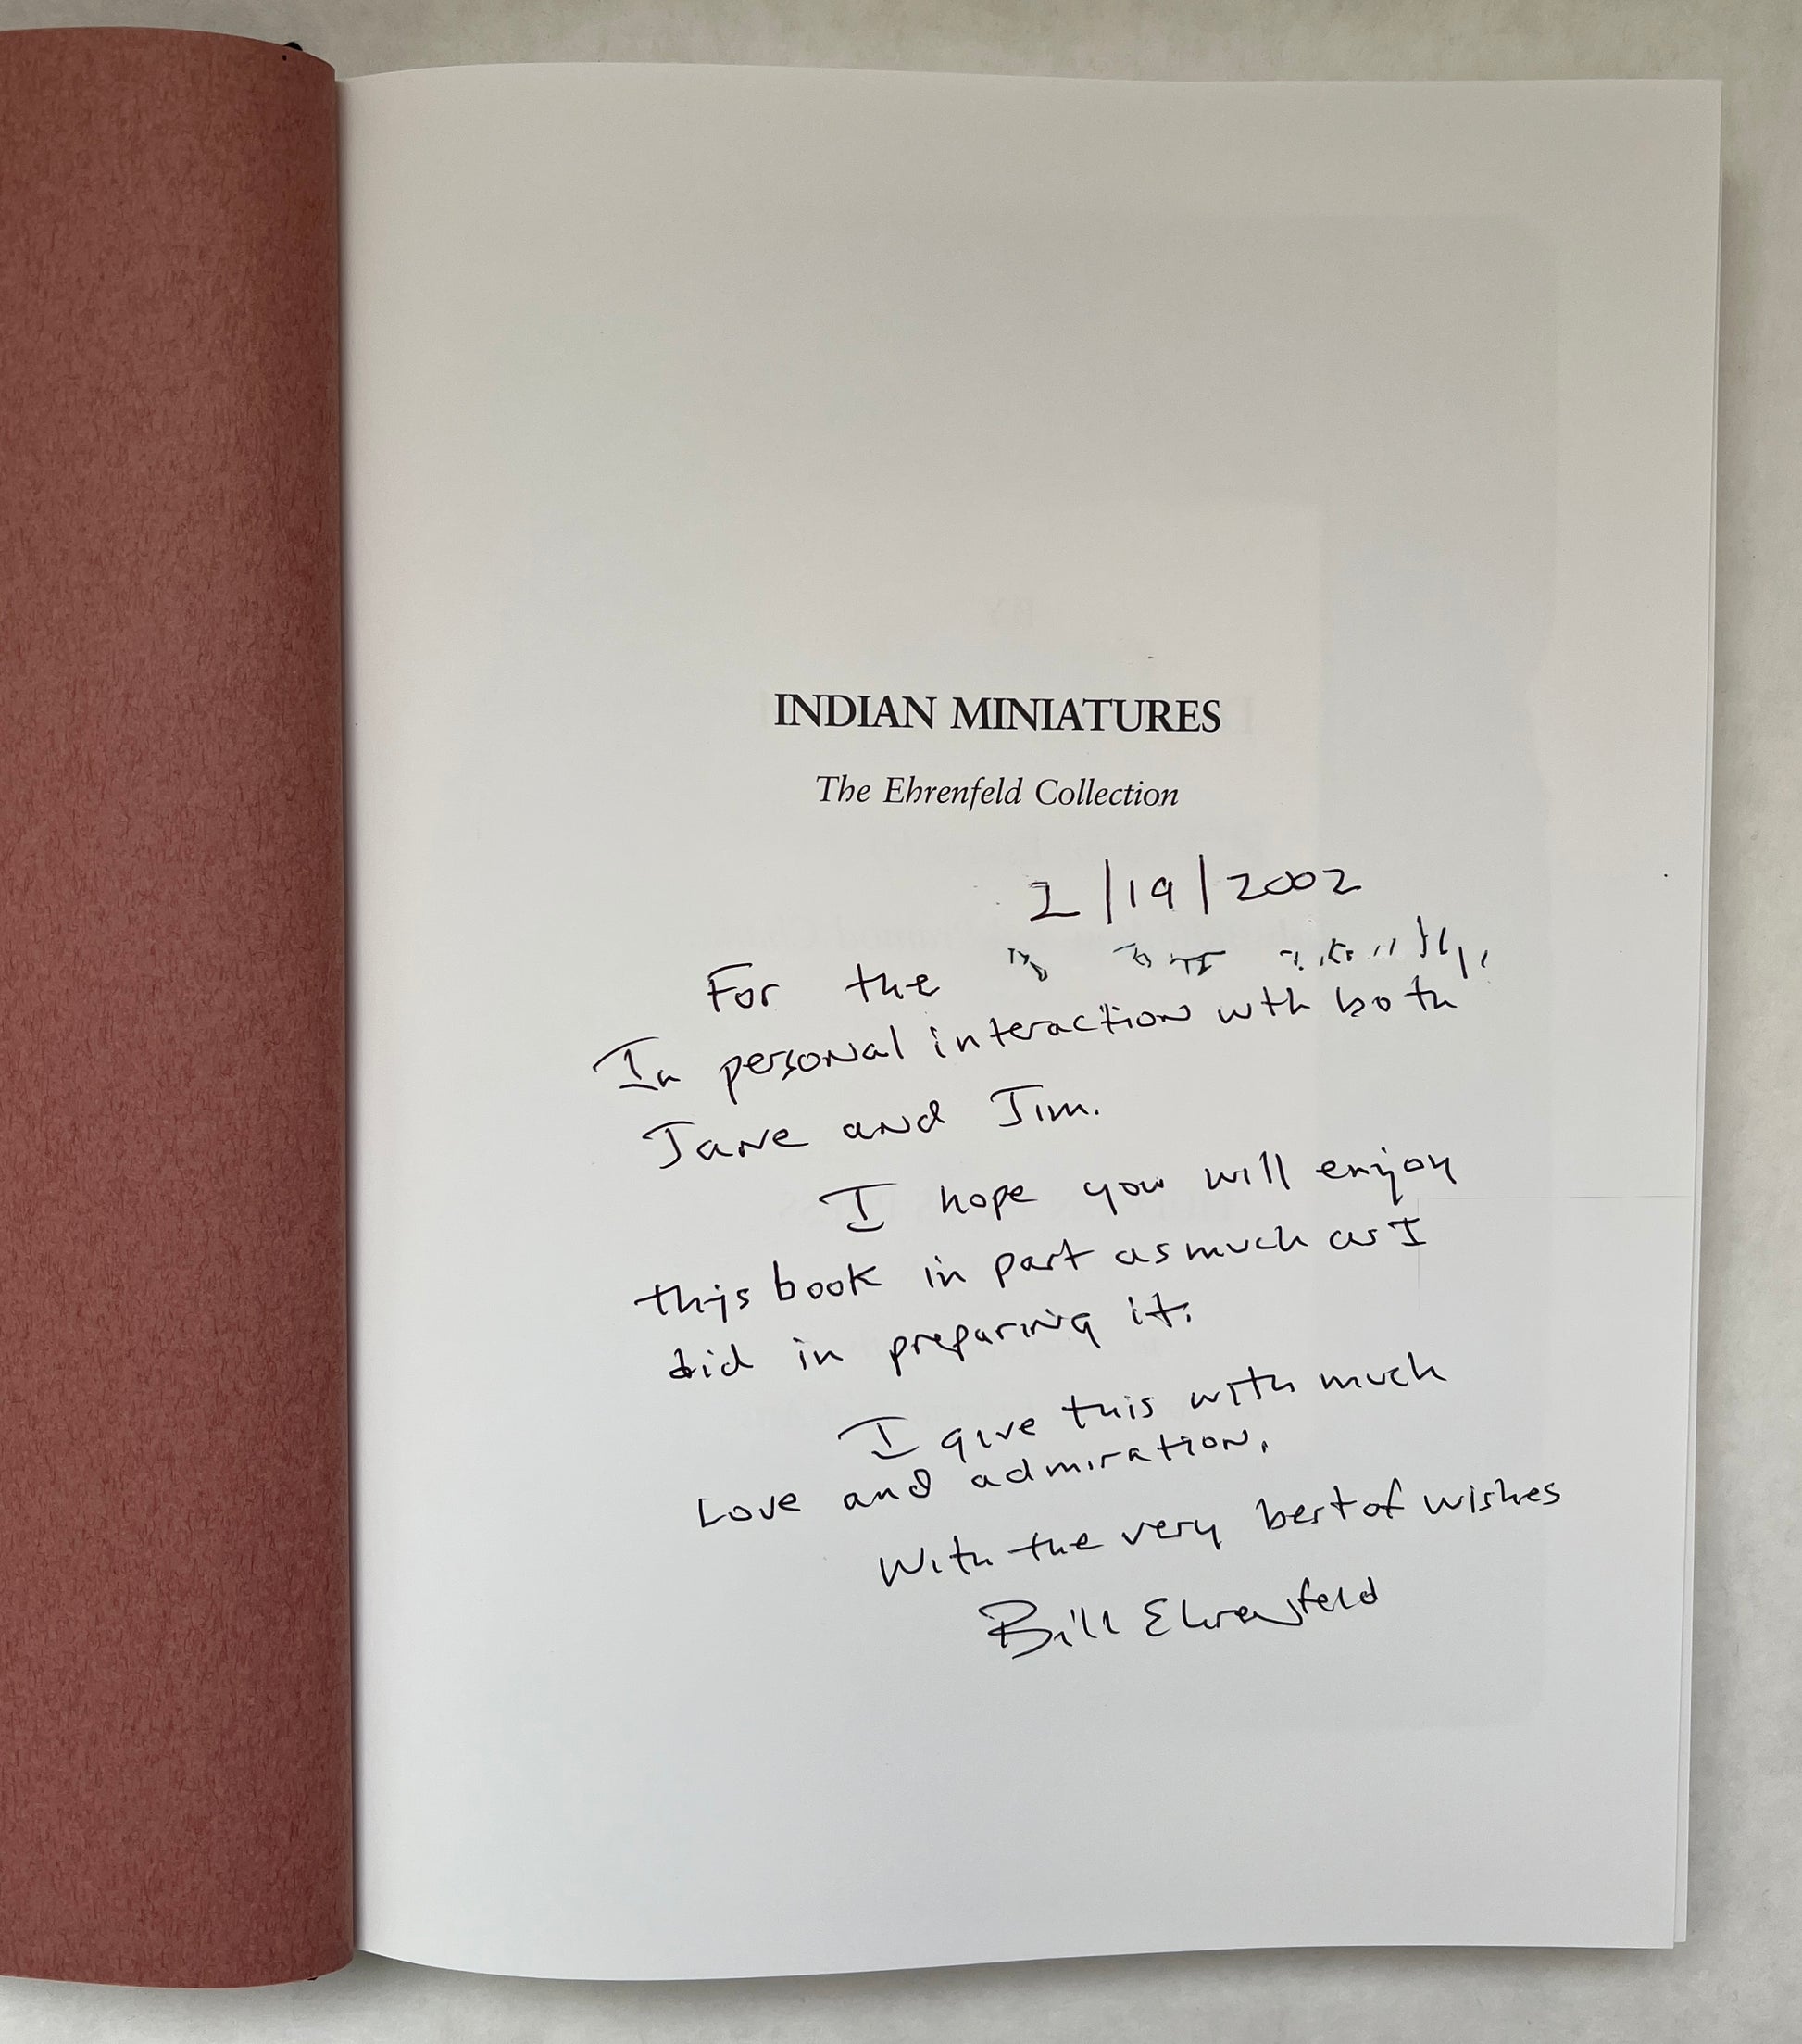 INDIAN MINIATURES
The Ehrenfeld Collection
2/19/2002
For the
In personal interaction wth both
Jane and Jim.
I hope you will enjoy
this book in part as much as I
did in preparing it.
I give this with much
Love and admiration.
With the very best of wishes
Bill Ehrenfeld